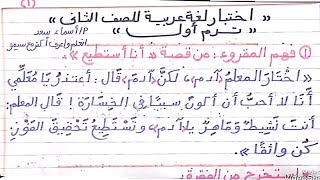 (1)
« اختبار لغة عربية للصف الثاني »
« ترم أول »
P/ أسماء سعد
① فهم المقروء: من قصة « أنا أستطيع »
« اختار المعلم «آدم» لكن «آدم» قال: أعتذر يا معلمي
أنا لا أحب أن أكون سببًا في الخسارة! قال المعلم:
أنت نشيط وماهر يا «آدم» وتستطيع تحقيق الفوز،
كن واثقًا ».
استخرج من الفقرة